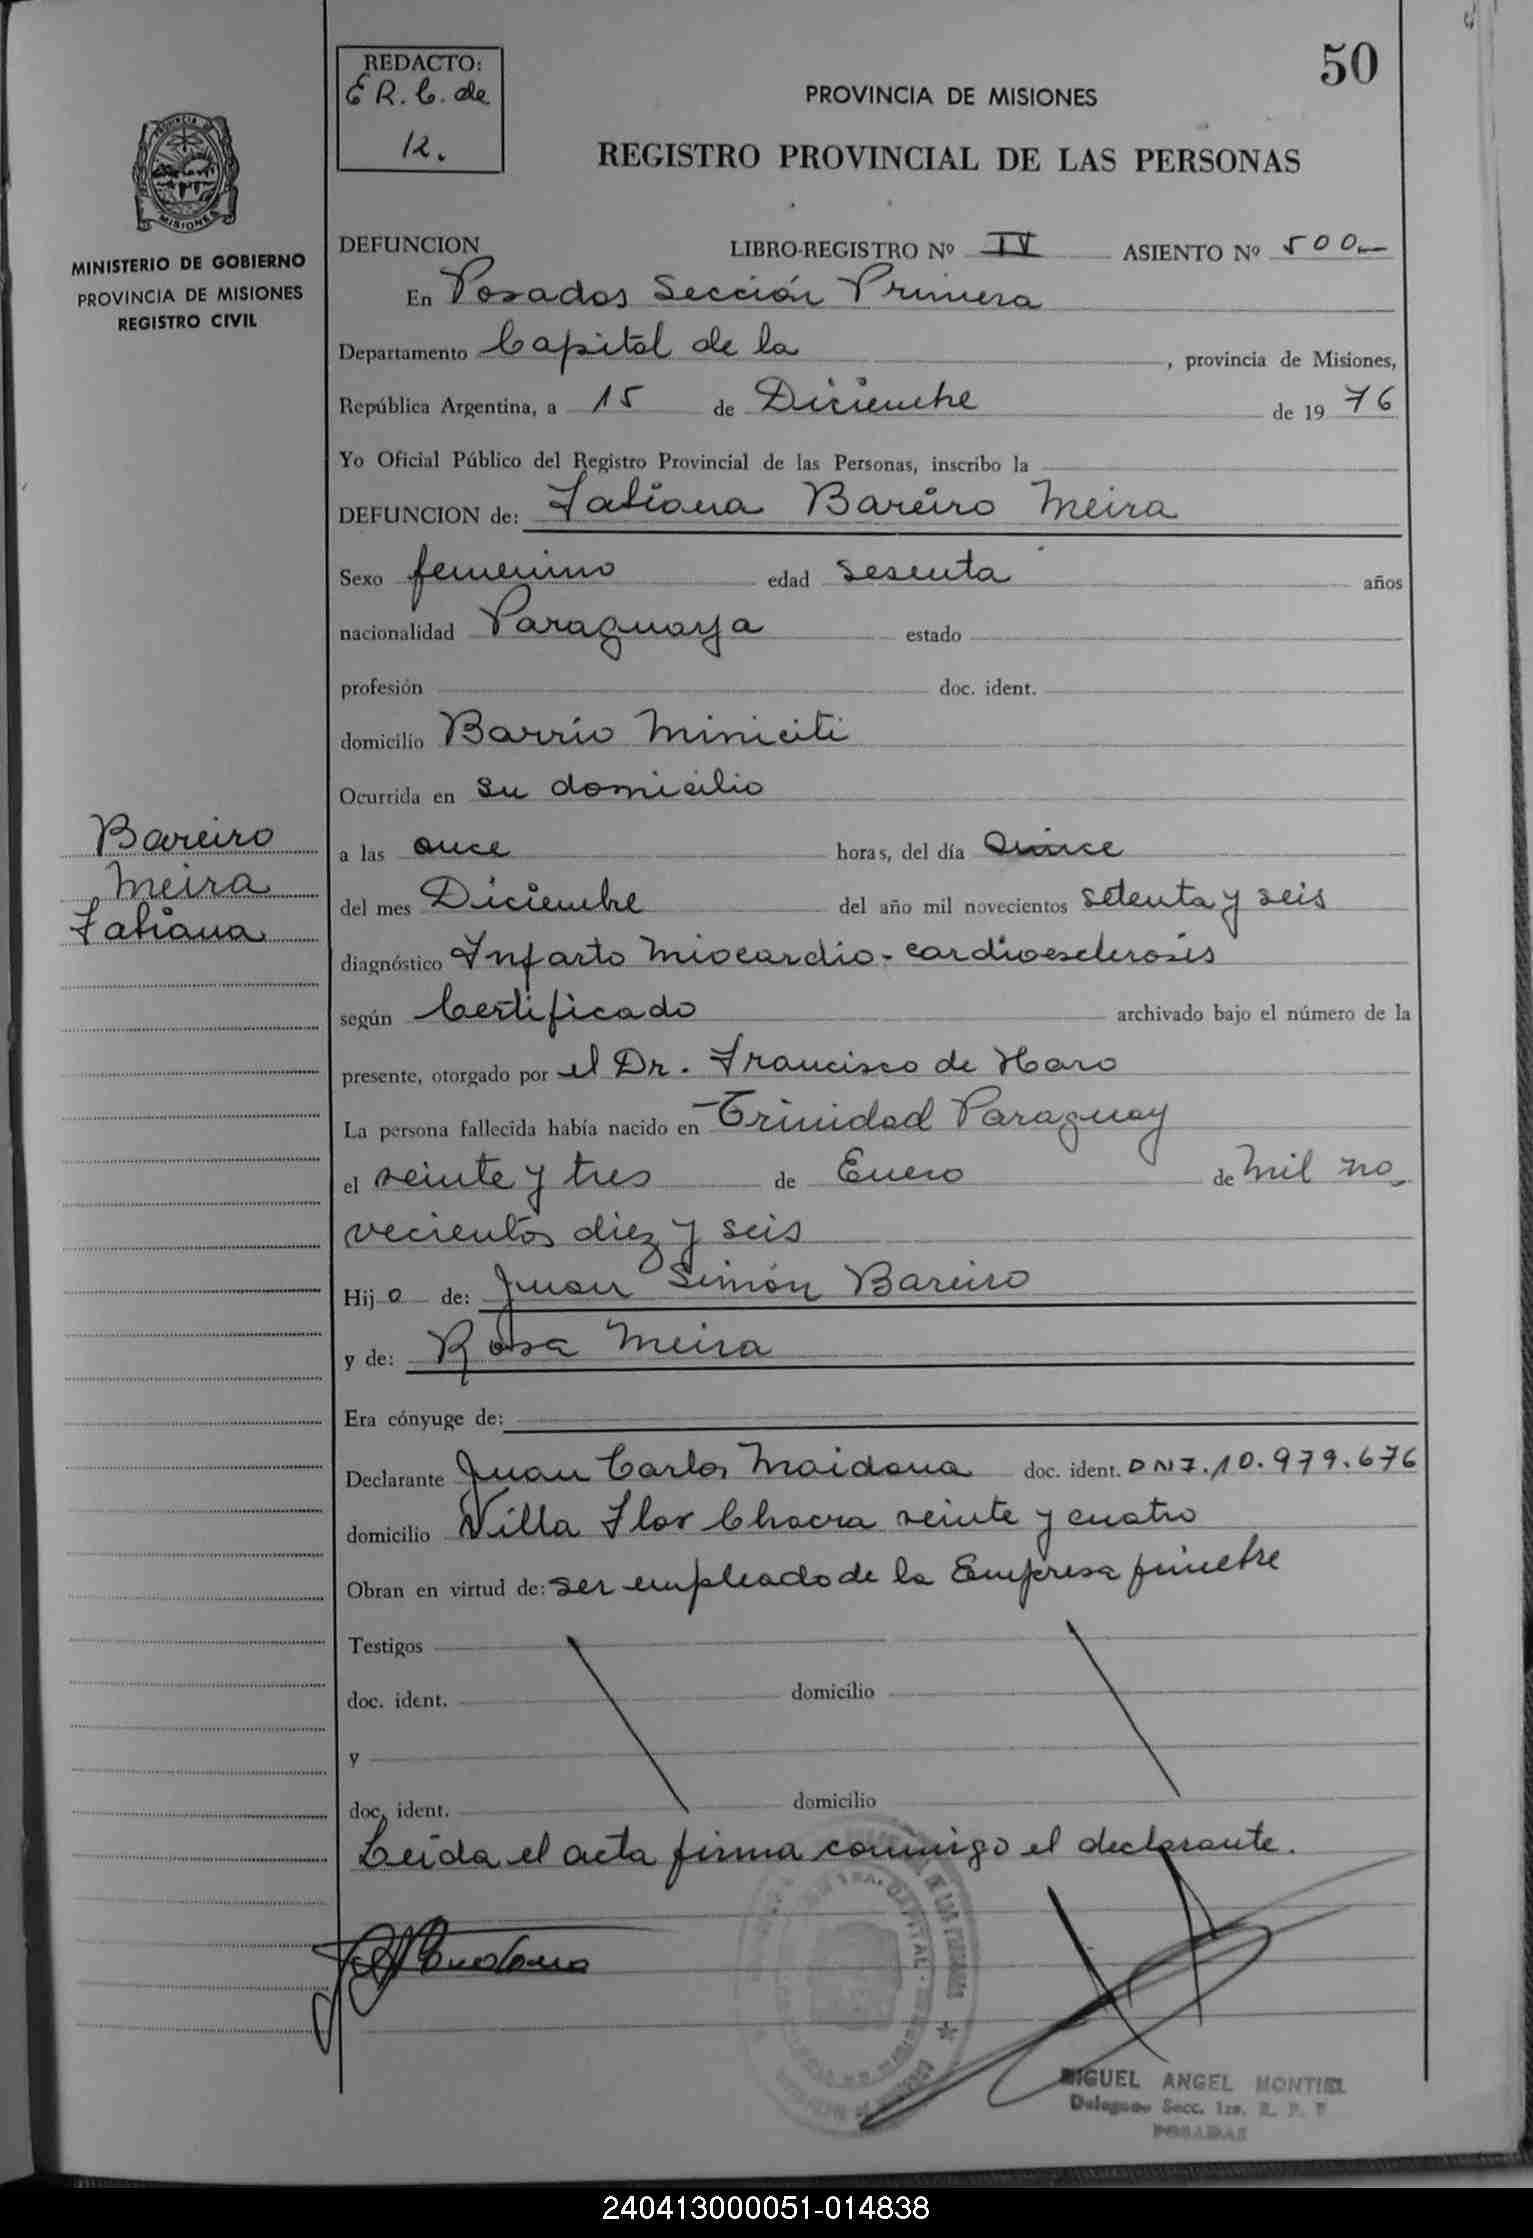 50
REDACTO:
E R. C. de
12.
PROVINCIA DE MISIONES
REGISTRO PROVINCIAL DE LAS PERSONAS
MISIONES
MINISTERIO DE GOBIERNO
PROVINCIA DE MISIONES
REGISTRO CIVIL
DEFUNCION LIBRO-REGISTRO Nº IV ASIENTO Nº 500
En Posadas Sección Primera
Departamento Capital de la , provincia de Misiones,
República Argentina, a 15 de Diciembre de 19 76
Yo Oficial Público del Registro Provincial de las Personas, inscribo la
DEFUNCION de: Tatiana Bareiro Meira
Sexo femenino edad sesenta años
nacionalidad Paraguaya estado
profesión doc. ident.
domicilio Barrio Miniciti
Ocurrida en su domicilio
Bareiro
Meira
Tatiana
a las once horas, del día Quince
del mes Diciembre del año mil novecientos setenta y seis
diagnóstico Infarto Miocardio - cardioesclerosis
según Certificado archivado bajo el número de la
presente, otorgado por el Dr. Francisco de Haro
La persona fallecida había nacido en Trinidad Paraguay
el veinte y tres de Enero de mil no
vecientos diez y seis
Hij a de: Juan Simón Bareiro
y de: Rosa Meira
Era cónyuge de:
Declarante Juan Carlos Maidana doc. ident. DNI. 10.979.676
domicilio Villa Flor Chacra veinte y cuatro
Obran en virtud de: ser empleado de la Empresa fúnebre
Testigos
doc. ident. domicilio
y
doc. ident. domicilio
Leída el acta firma conmigo el declarante.
MIGUEL ANGEL MONTIEL
Delegado Secc. 1ra. R. P. P
POSADAS
240413000051-014838